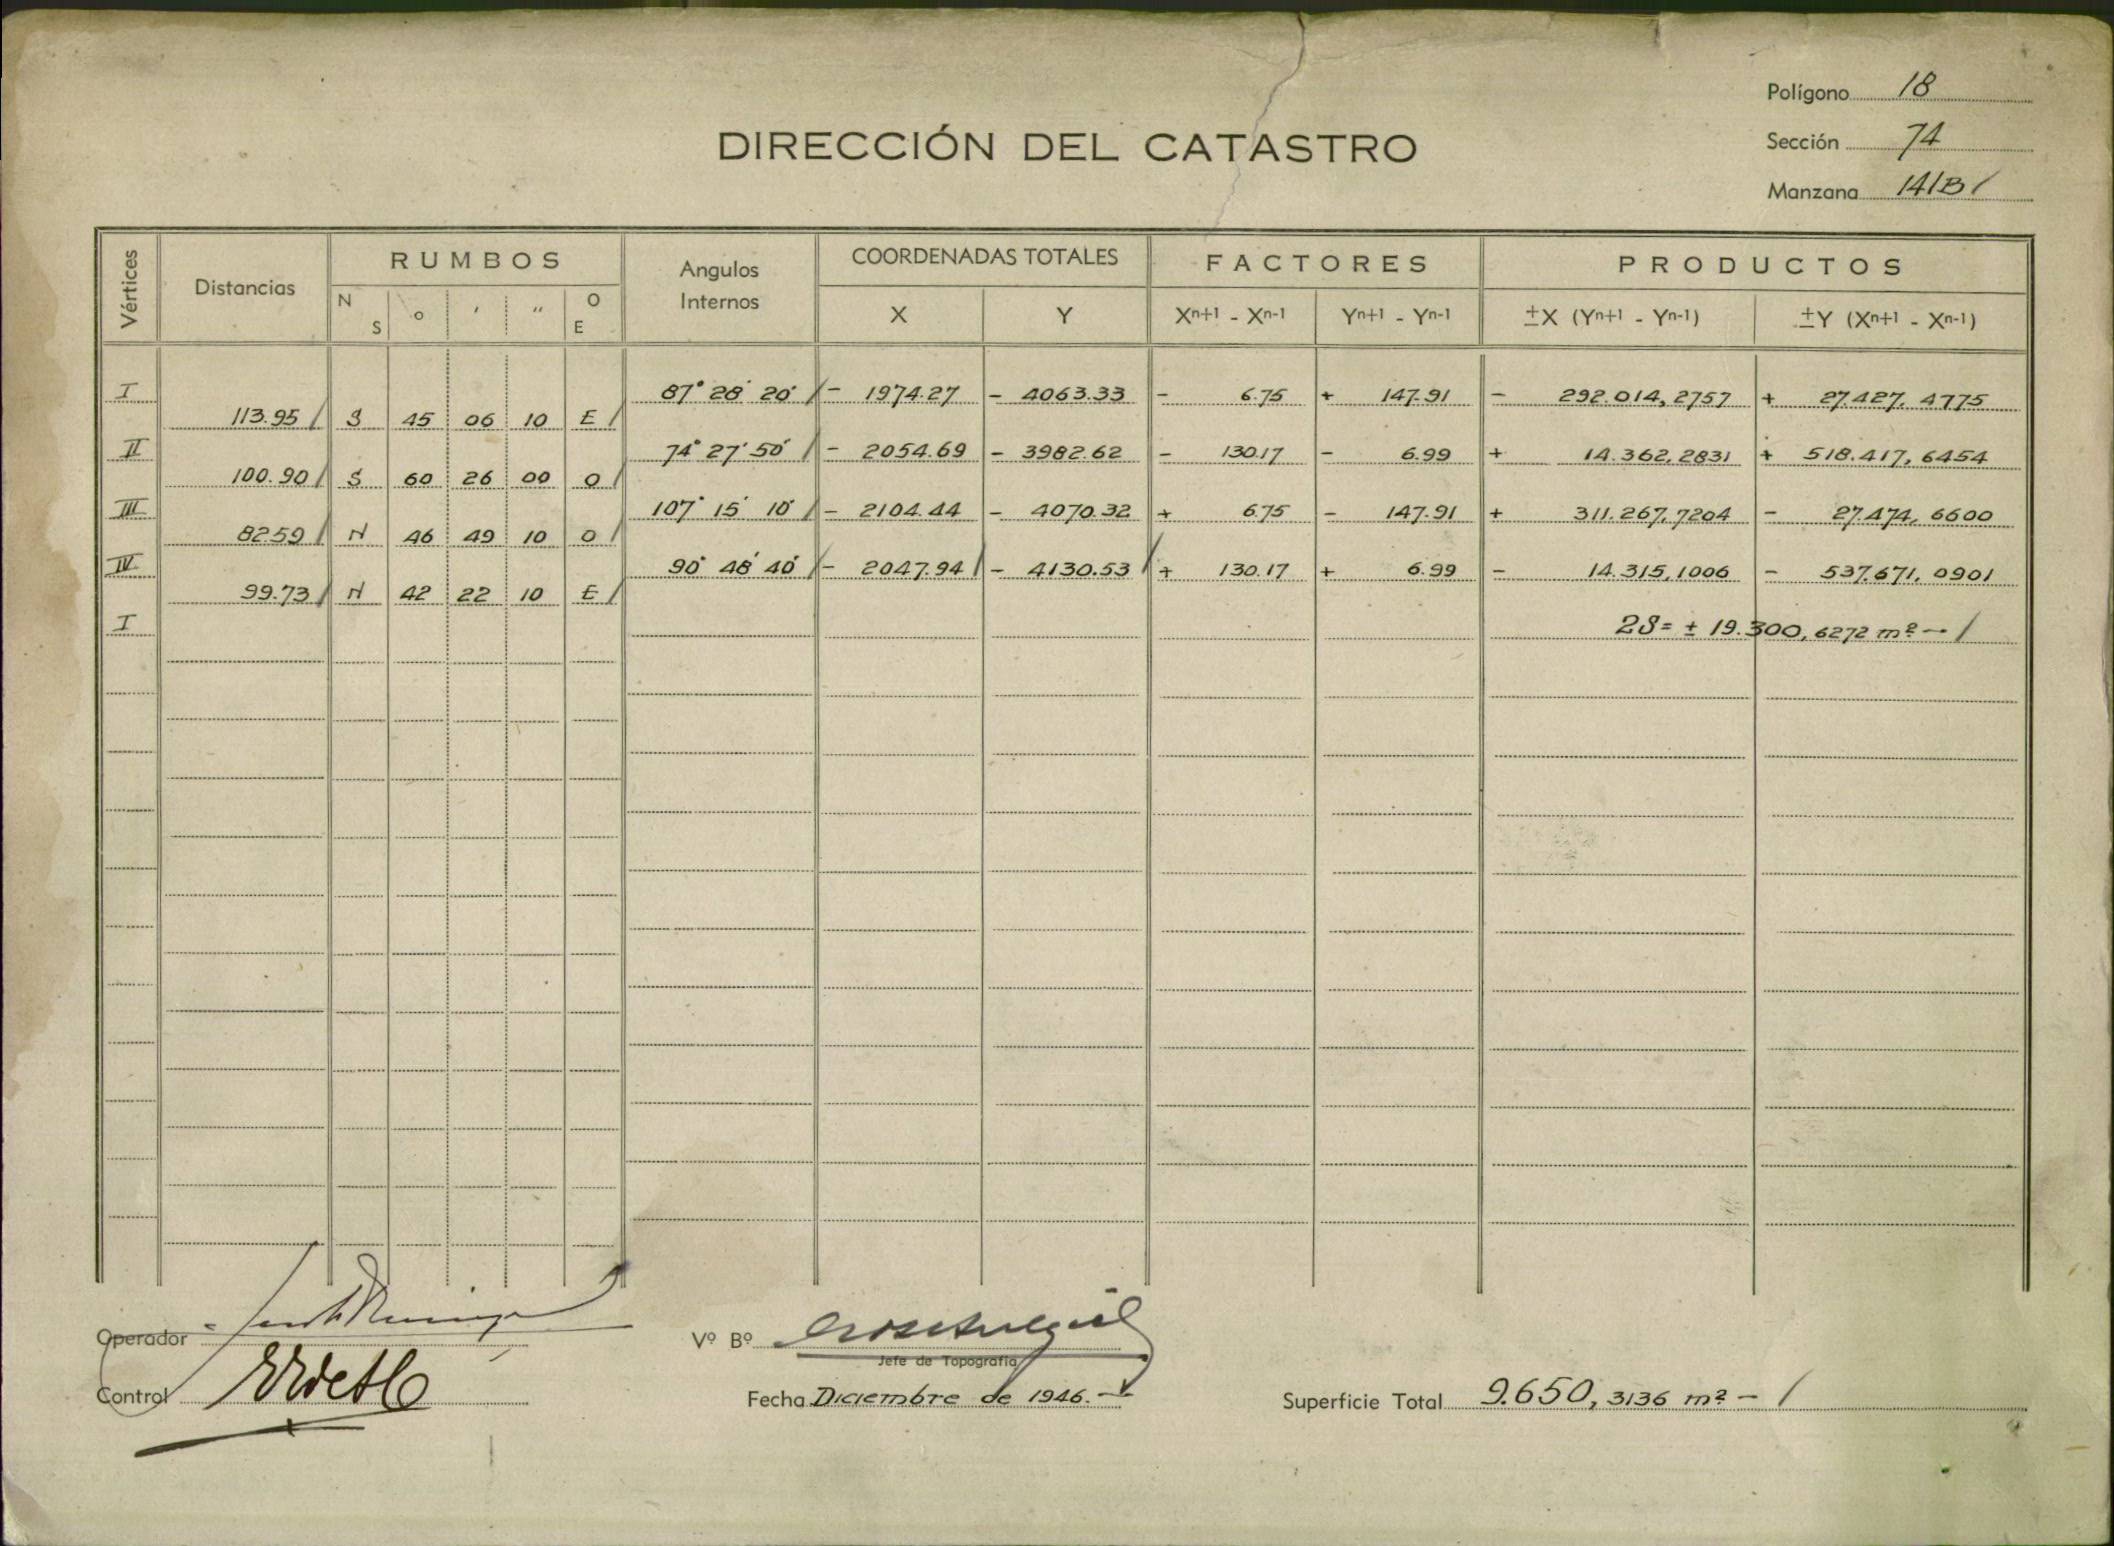 Polígono 18
DIRECCIÓN DEL CATASTRO
Sección 74
Manzana 141B/
Vértices Distancias RUMBOS Angulos Internos COORDENADAS TOTALES FACTORES PRODUCTOS
N S ° ' " O E X Y Xn+1 - Xn-1 Yn+1 - Yn-1 ±X (Yn+1 - Yn-1) ±Y (Xn+1 - Xn-1)
I 87° 28' 20" / - 1974.27 - 4063.33 - 6.75 + 147.91 - 292.014,2757 + 27.427,4775
113.95 / S 45 06 10 E /
II 74° 27' 50" / - 2054.69 - 3982.62 - 130.17 - 6.99 + 14.362,2831 + 518.417,6454
100.90 / S 60 26 00 O /
III 107° 15' 10" / - 2104.44 - 4070.32 + 6.75 - 147.91 + 311.267,7204 - 27.474,6600
82.59 / N 46 49 10 O /
IV 90° 48' 40" / - 2047.94 / - 4130.53 / + 130.17 + 6.99 - 14.315,1006 - 537.671,0901
99.73 / N 42 22 10 E /
I 2S = ± 19.300,6272 m² - /
Operador
Vº Bº
Jefe de Topografía
Control
Fecha Diciembre de 1946.-
Superficie Total 9.650,3136 m² - /